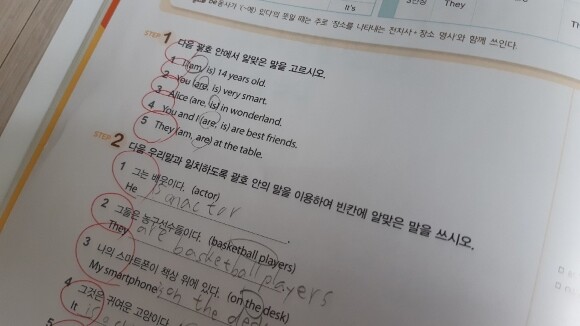 It's
They
They
be동사가 '(~에) 있다'의 뜻일 때는 주로 장소를 나타내는 전치사+장소 명사와 함께 쓰인다.
STEP 1 다음 괄호 안에서 알맞은 말을 고르시오.
1 I (am, is) 14 years old.
2 You (are, is) very smart.
3 Alice (are, is) in wonderland.
4 You and I (are, is) are best friends.
5 They (am, are) at the table.
STEP 2 다음 우리말과 일치하도록 괄호 안의 말을 이용하여 빈칸에 알맞은 말을 쓰시오.
1 그는 배우이다. (actor)
He is an actor.
2 그들은 농구선수들이다. (basketball players)
They are basketball players
3 나의 스마트폰이 책상 위에 있다. (on the desk)
My smartphone is on the desk
4 그것은 귀여운 고양이다.
It is
5